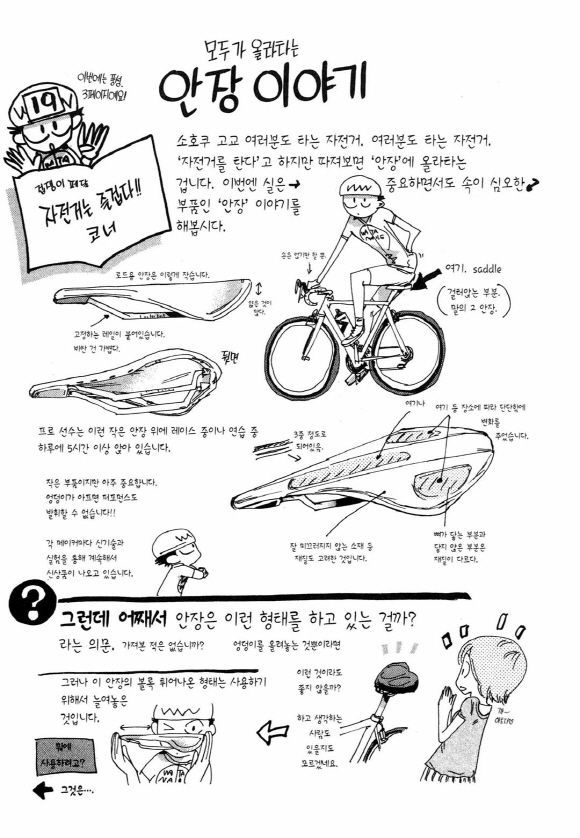 모두가 올라타는
안장 이야기
이번에는 풍성.
3페이지예요!
19
자전거는 즐겁다!!
코너
소호쿠 고교 여러분도 타는 자전거. 여러분도 타는 자전거.
'자전거를 탄다'고 하지만 따져보면 '안장'에 올라타는
겁니다. 이번엔 실은 → 중요하면서도 속이 심오한
부품인 '안장' 이야기를
해봅시다.
손은 얹기만 할 뿐.
여기. saddle
(걸터앉는 부분.
말의 그 안장.)
로드용 안장은 이렇게 작습니다.
얇은 것이
많다.
고정하는 레일이 붙어있습니다.
비싼 건 가볍다.
뒷면
프로 선수는 이런 작은 안장 위에 레이스 중이나 연습 중
하루에 5시간 이상 앉아 있습니다.
작은 부품이지만 아주 중요합니다.
엉덩이가 아프면 퍼포먼스도
발휘할 수 없습니다!!
각 메이커마다 신기술과
실험을 통해 계속해서
신상품이 나오고 있습니다.
3층 정도로
되어있음.
여기나
여기 등 장소에 따라 단단함에
변화를
주었습니다.
잘 미끄러지지 않는 소재 등
재질도 고려한 것입니다.
뼈가 닿는 부분과
닿지 않은 부분은
재질이 다르다.
?
그런데 어째서 안장은 이런 형태를 하고 있는 걸까?
라는 의문, 가져본 적은 없습니까? 엉덩이를 올려놓는 것뿐이라면
이런 것이라도
좋지 않을까?
하고 생각하는
사람도
있을지도
모르겠네요.
그러나 이 안장의 볼록 튀어나온 형태는 사용하기
위해서 늘여놓은
것입니다.
뭐에
사용하려고?
← 그것은….